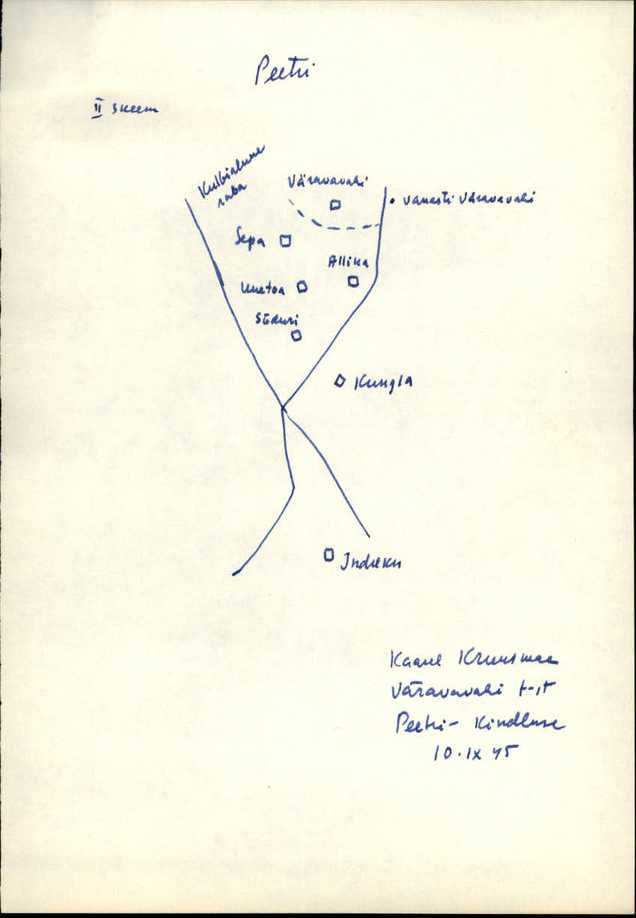 Peetri
II skeem
Kulbialuse
raba
Väravavahi
vanasti Väravavahi
Sepa
Allika
Uuetoa
Sõduri
Kungla
Indreku
Kaarel Kruusmaa
Väravavahi t-st
Peetri - Kindluse
10.IX 45